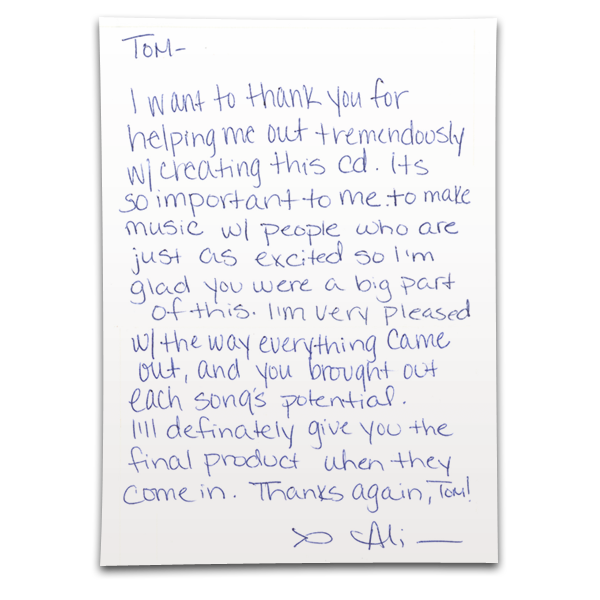 Tom-
I want to thank you for
helping me out tremendously
w/ creating this cd. Its
so important to me to make
music w/ people who are
just as excited so I'm
glad you were a big part
of this. I'm very pleased
w/ the way everything came
out, and you brought out
each song's potential.
I'll definately give you the
final product when they
come in. Thanks again, Tom!
xo Ali